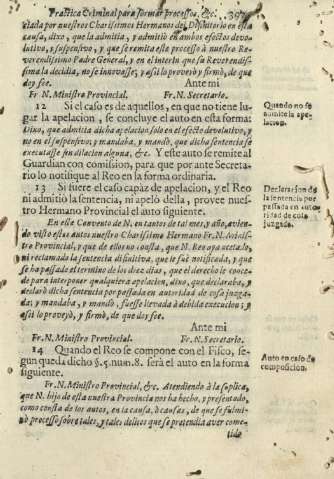 Practica Criminal para formar processos, &c. 39
tada por nuestros Charissimos Hermanos del Difinitorio en esta
causa, dixo, que la admitia, y admitió en ambos efectos devo-
lutivo, y suspensivo, y que se remita este processo à nuestro Reve-
rendissimo Padre General, y en el interin que su Reverendis-
sima la decidia, no se innovasse; y assi lo proveyò, y firmò, de que
doy fee. Ante mi
Fr. N. Ministro Provincial. Fr. N. Secretario.
12 Si el caso es de aquellos, en que no tiene lu-
gar la apelacion, se concluye el auto en esta forma:
Dixo, que admitia dicha apelacion solo en el efecto devolutivo, y
no en el suspensivo; y mandaba, y mandò, que dicha sentencia se
executasse sin dilacion alguna, &c. Y este auto se remite al
Guardian con comission, para que por ante Secreta-
rio lo notifique al Reo en la forma ordinaria.
Quando no se
admite la ape-
lacion.
13 Si fuere el caso capàz de apelacion, y el Reo
ni admitiò la sentencia, ni apelò della, provee nues-
tro Hermano Provincial el auto siguiente.
En este Convento de N. en tantos de tal mes, y año, avien-
do visto estos autos nuestro Charissimo Hermano Fr. N. Minis-
tro Provincial, y que de ellos no consta, que N. Reo aya acetado,
ni reclamado la sentencia difinitiva, que le fue notificada, y que
se ha passado el termino de los diez dias, que el derecho le conce-
de para interponer qualquiera apelacion, dixo, que declaraba, y
declarò dicha sentencia por passada en autoridad de cosa juzga-
da; y mandaba, y mandò, fuesse llevada à debida execucion; y
assi lo proveyò, y firmò, de que doy fee.
Declaracion de
la sentencia por
passada en auto-
ridad de cosa
juzgada.
Ante mi
Fr. N. Ministro Provincial. Fr. N. Secretario.
14 Quando el Reo se compone con el Fisco, se-
gun queda dicho §. 5. num. 8. serà el auto en la forma
siguiente.
Auto en caso de
composicion.
Fr. N. Ministro Provincial, &c. Atendiendo à la suplica,
que N. hijo de esta nuestra Provincia nos ha hecho, y presentado,
como consta de los autos, en la causa, ò causas, de que se fulmi-
nò processo sobre tales, y tales delitos que se pretendia aver come-
tido